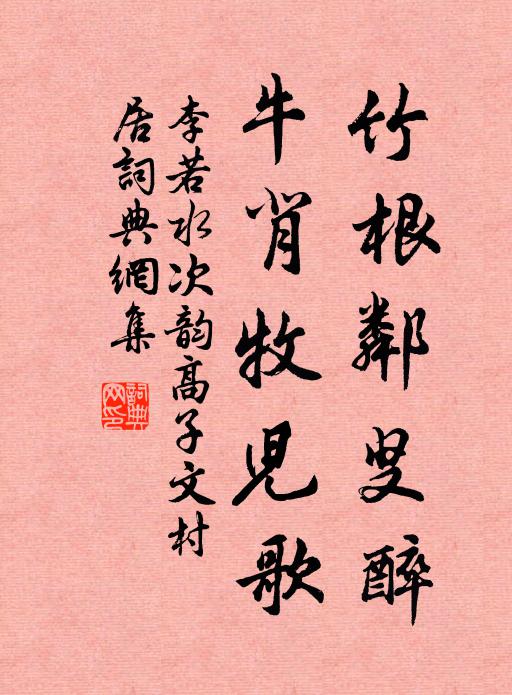 竹根鄰叟醉
牛背牧兒歌
李若水次韵高子文村
居詞典網集
詞典網印